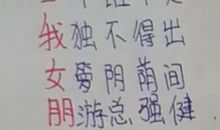 我独不得出
女爱阴荫间
朋游总强健